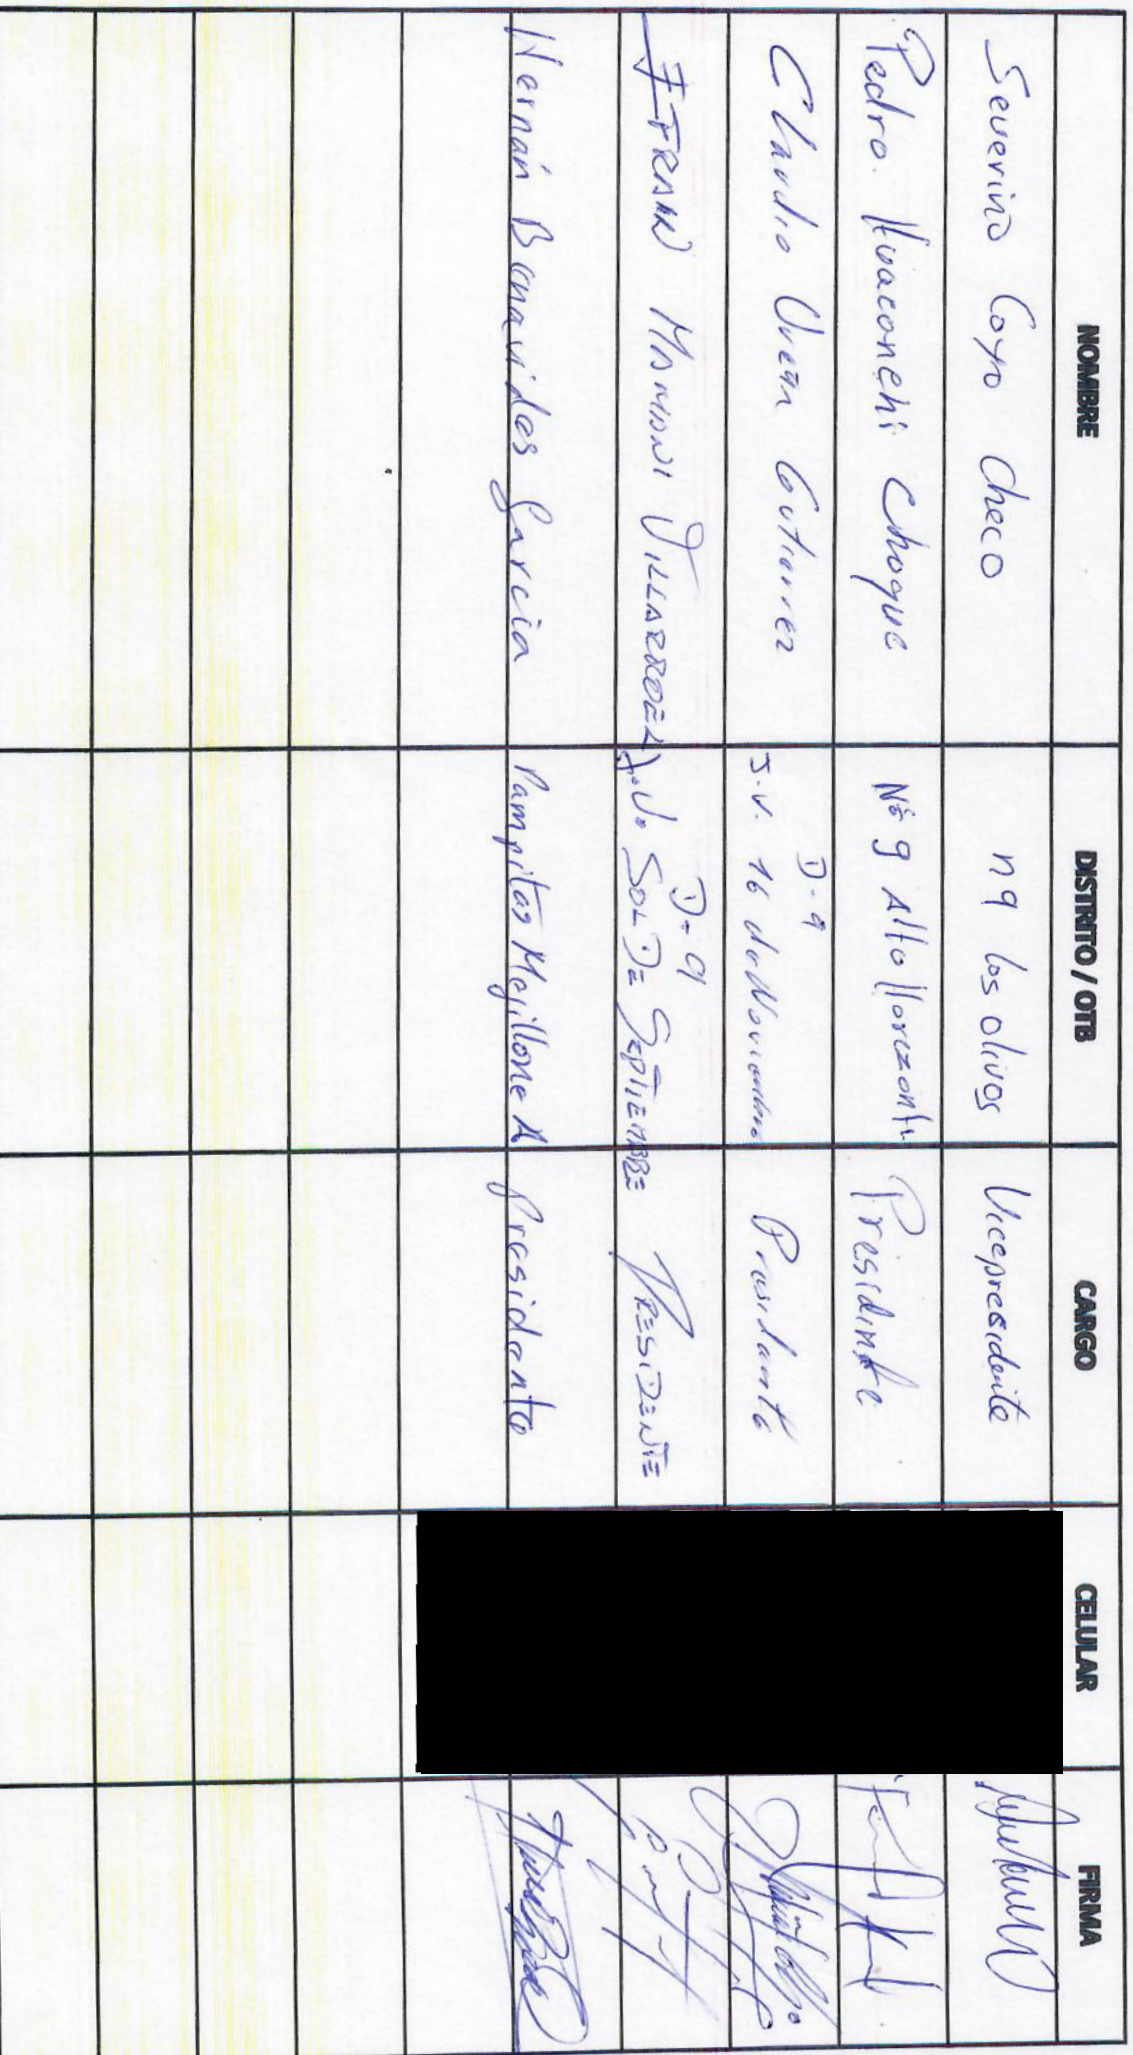 NOMBRE DISTRITO / OTB CARGO CELULAR FIRMA
Severino Coyo Checo n9 los olivos Vicepresidente
Pedro. Huaconchi Choque Nº 9 Alto Horizonte Presidinte
D-9
Claudio Ureña Gutierrez J.V. 16 de Noviembre Presidente
D-9
MAMANI VILLARROEL J.V. SOL DE SEPTIEMBRE PRESIDENTE
Hernán Benavides Garcia Pampitas Mejillone A Presidente